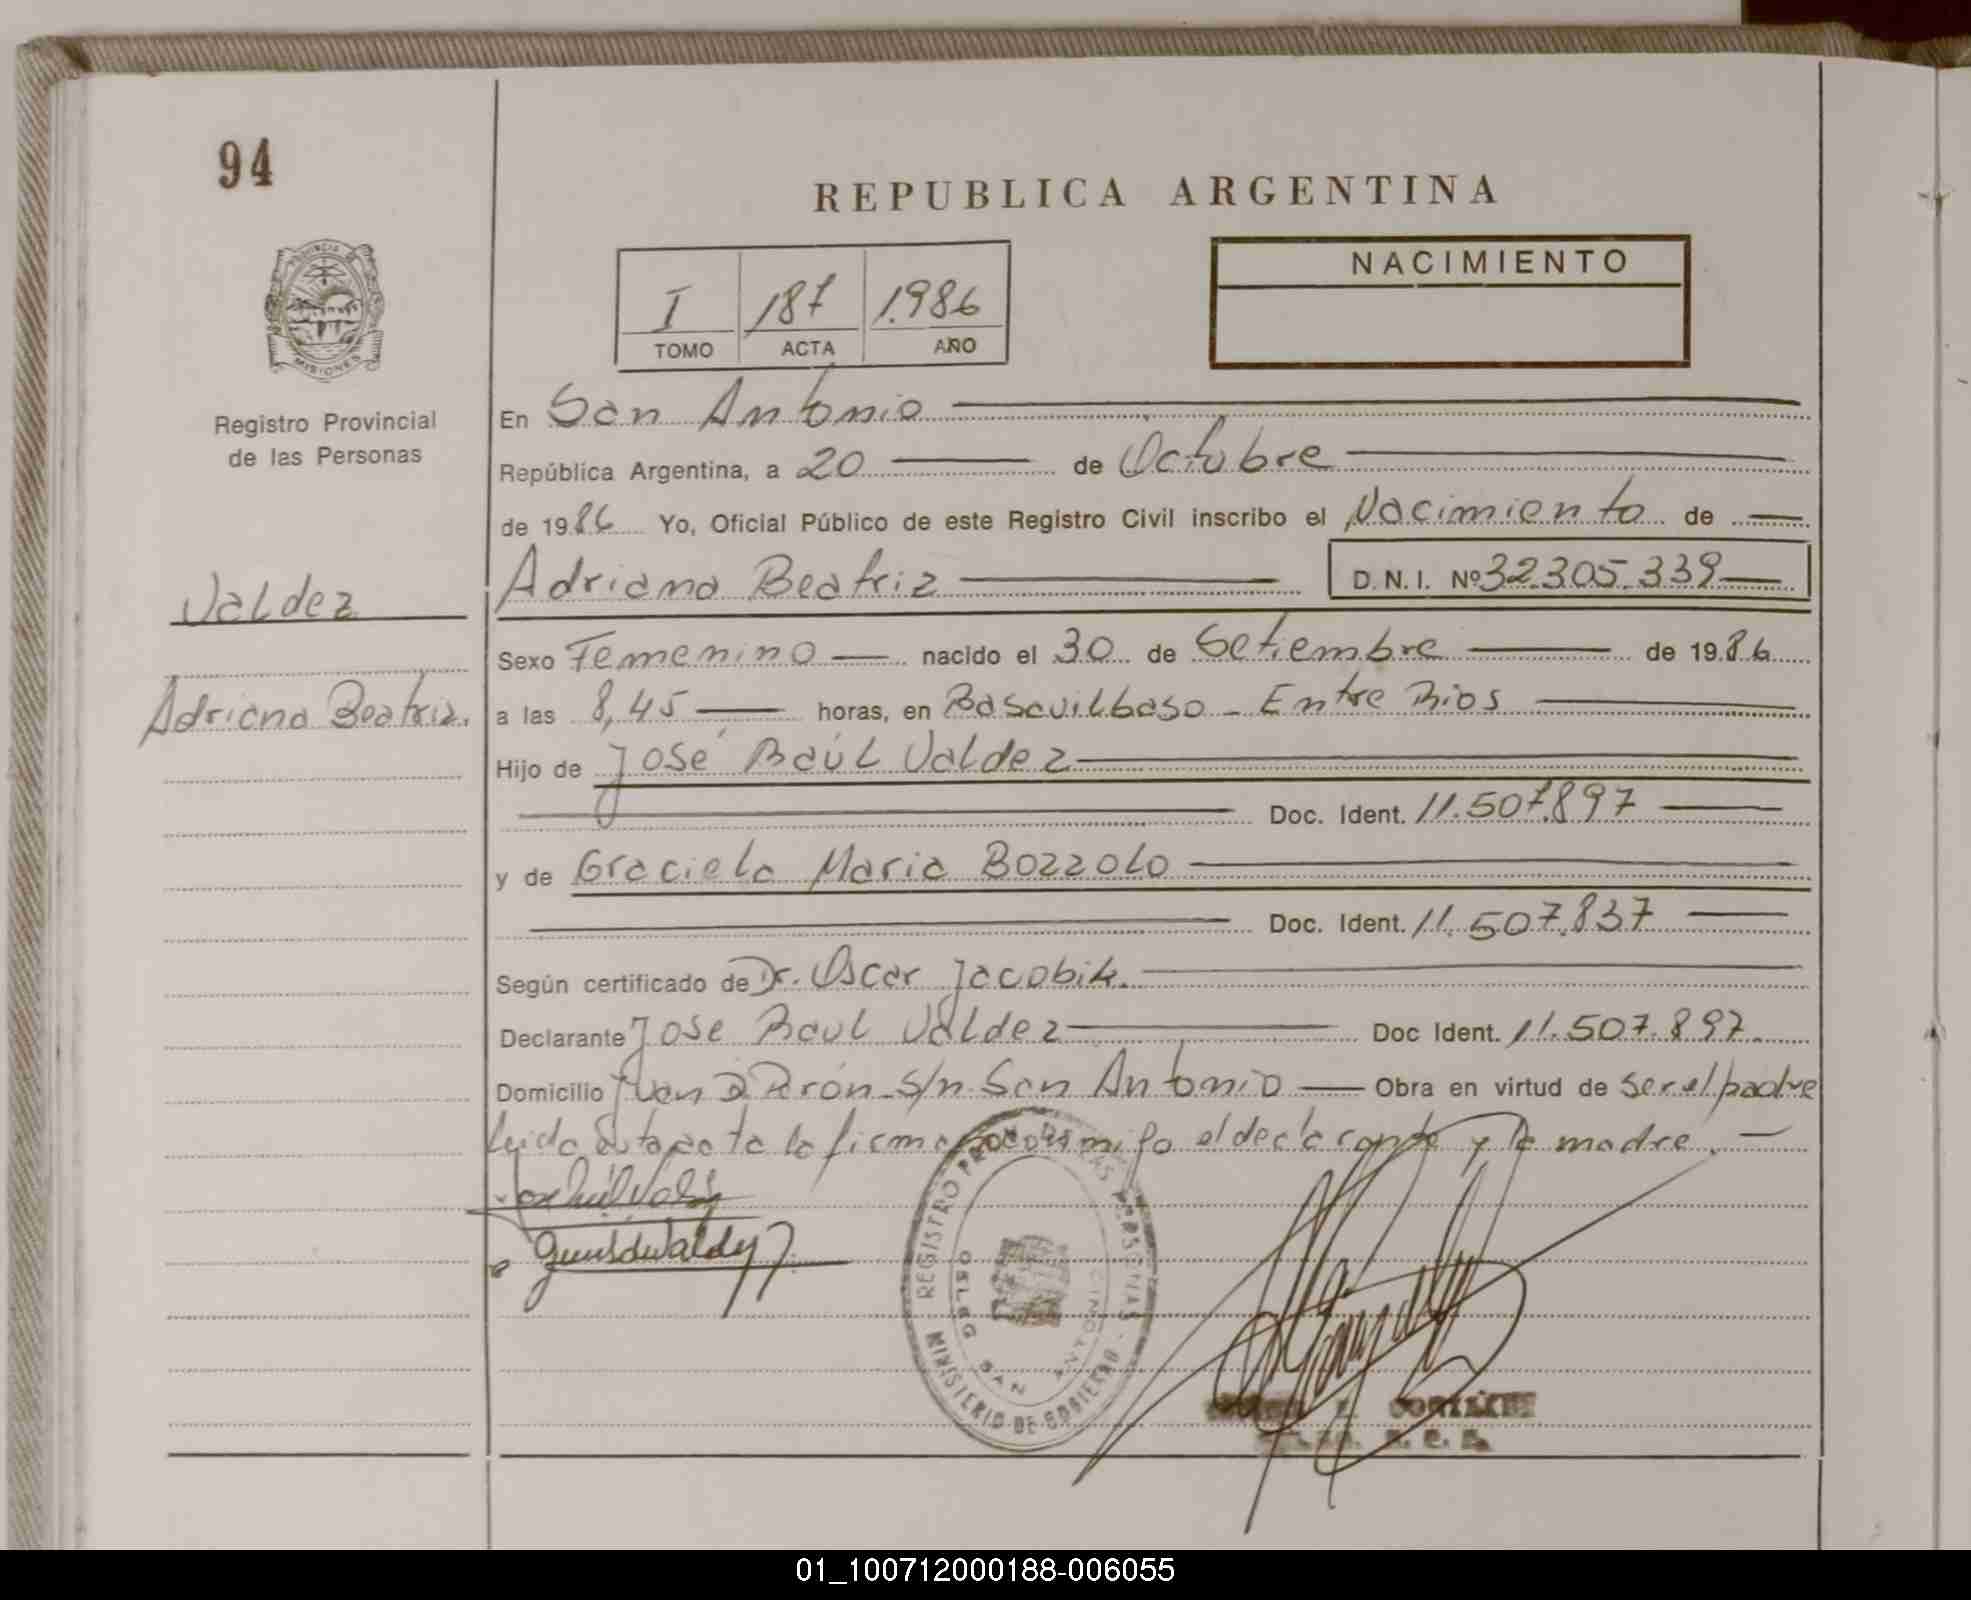 94
REPUBLICA ARGENTINA
PROVINCIA DE
MISIONES
Registro Provincial
de las Personas
I 187 1.986
TOMO ACTA AÑO
NACIMIENTO
En San Antonio
República Argentina, a 20 de Octubre
de 1986 Yo, Oficial Público de este Registro Civil inscribo el Nacimiento de
Valdez
Adriana Beatriz
Adriana Beatriz D.N.I. Nº 32.305.339
Sexo Femenino nacido el 30 de Setiembre de 1986
a las 8,45 horas, en Basavilbaso - Entre Rios
Hijo de José Raúl Valdez
Doc. Ident. 11.507.897
y de Graciela Maria Bozzolo
Doc. Ident. 11.507.837
Según certificado de Dr. Oscar Jacobik.
Declarante Jose Raul Valdez Doc Ident. 11.507.897.
Domicilio Juan D Perón s/n San Antonio Obra en virtud de ser el padre
leida esta acta la firma conmigo el declarante y la madre.
REGISTRO PROV. DE LAS PERSONAS
MINISTERIO DE GOBIERNO
SAN ANTONIO
R. C. P.
01_100712000188-006055